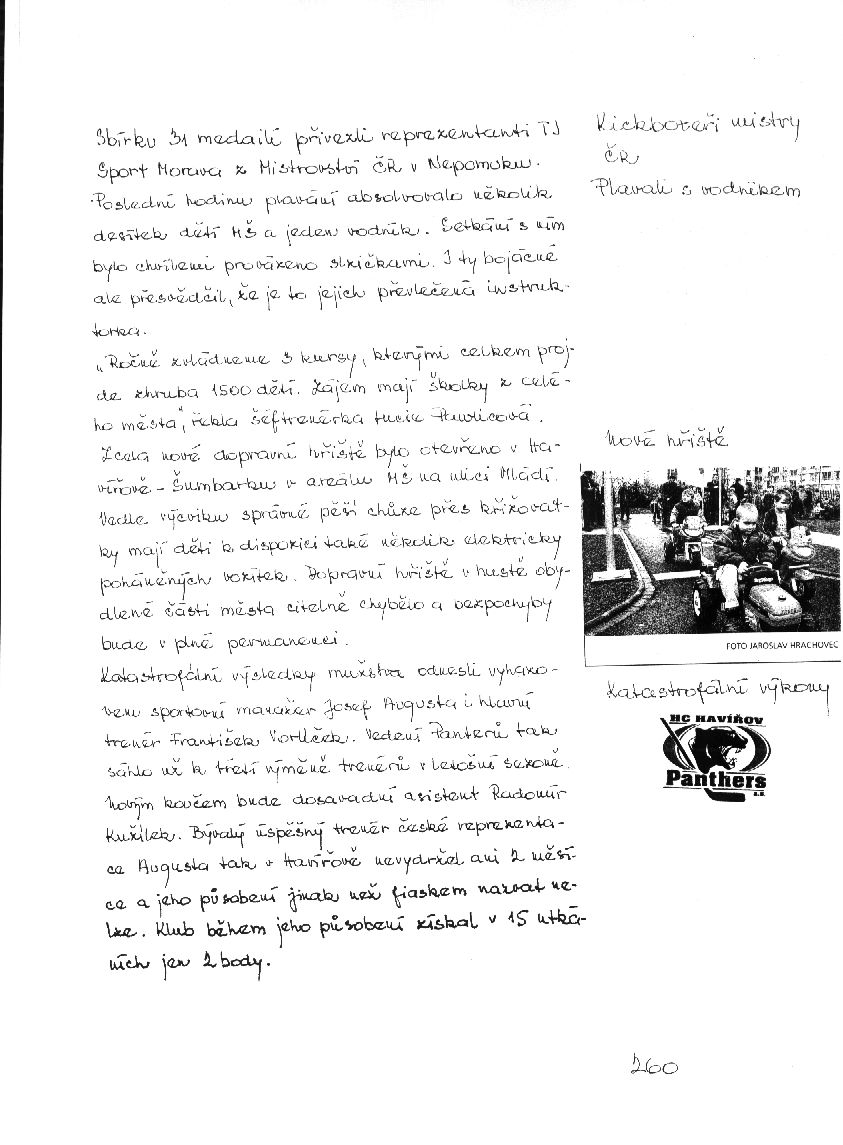 Sbírku 31 medailí přivezli reprezentanti TJ
Sport Morava z Mistrovství ČR v Nepomuku.
Poslední hodinu plavání absolvovalo několik
desítek dětí MŠ a jeden vodník. Setkání s ním
bylo chvílemi provázeno slzičkami. I ty bojácné
ale přesvědčil, že je to jejich převlečená instruk-
torka.
„Ročně zvládneme 3 kursy, kterými celkem proj-
de zhruba 1500 dětí. Zájem mají školky z celé-
ho města", řekla šéftrenérka Lucie Pawlicová.
Zcela nové dopravní hřiště bylo otevřeno v Ha-
vířově - Šumbarku v areálu MŠ na ulici Mládí.
Vedle výcviku správné pěší chůze přes křižovat-
ky mají děti k dispozici také několik elektricky
poháněných vozítek. Dopravní hřiště v hustě oby-
dlené části města citelně chybělo a bezpochyby
bude v plné permanenci.
Katastrofální výsledky mužstva odnesli vyhazo-
vem sportovní manažer Josef Augusta i hlavní
trenér František Vorlíček. Vedení Panterů tak
sáhlo už k třetí výměně trenérů v letošní sezoně.
Novým koučem bude dosavadní asistent Radomír
Kužílek. Bývalý úspěšný trenér české reprezenta-
ce Augusta tak v Havířově nevydržel ani 2 měsí-
ce a jeho působení jinak než fiaskem nazvat ne-
lze. Klub během jeho působení získal v 15 utká-
ních jen 2 body.
Kickboxeři mistry
ČR
Plavali s vodníkem
Nové hřiště
FOTO JAROSLAV HRACHOVEC
Katastrofální výkony
HC HAVÍŘOV
Panthers
260